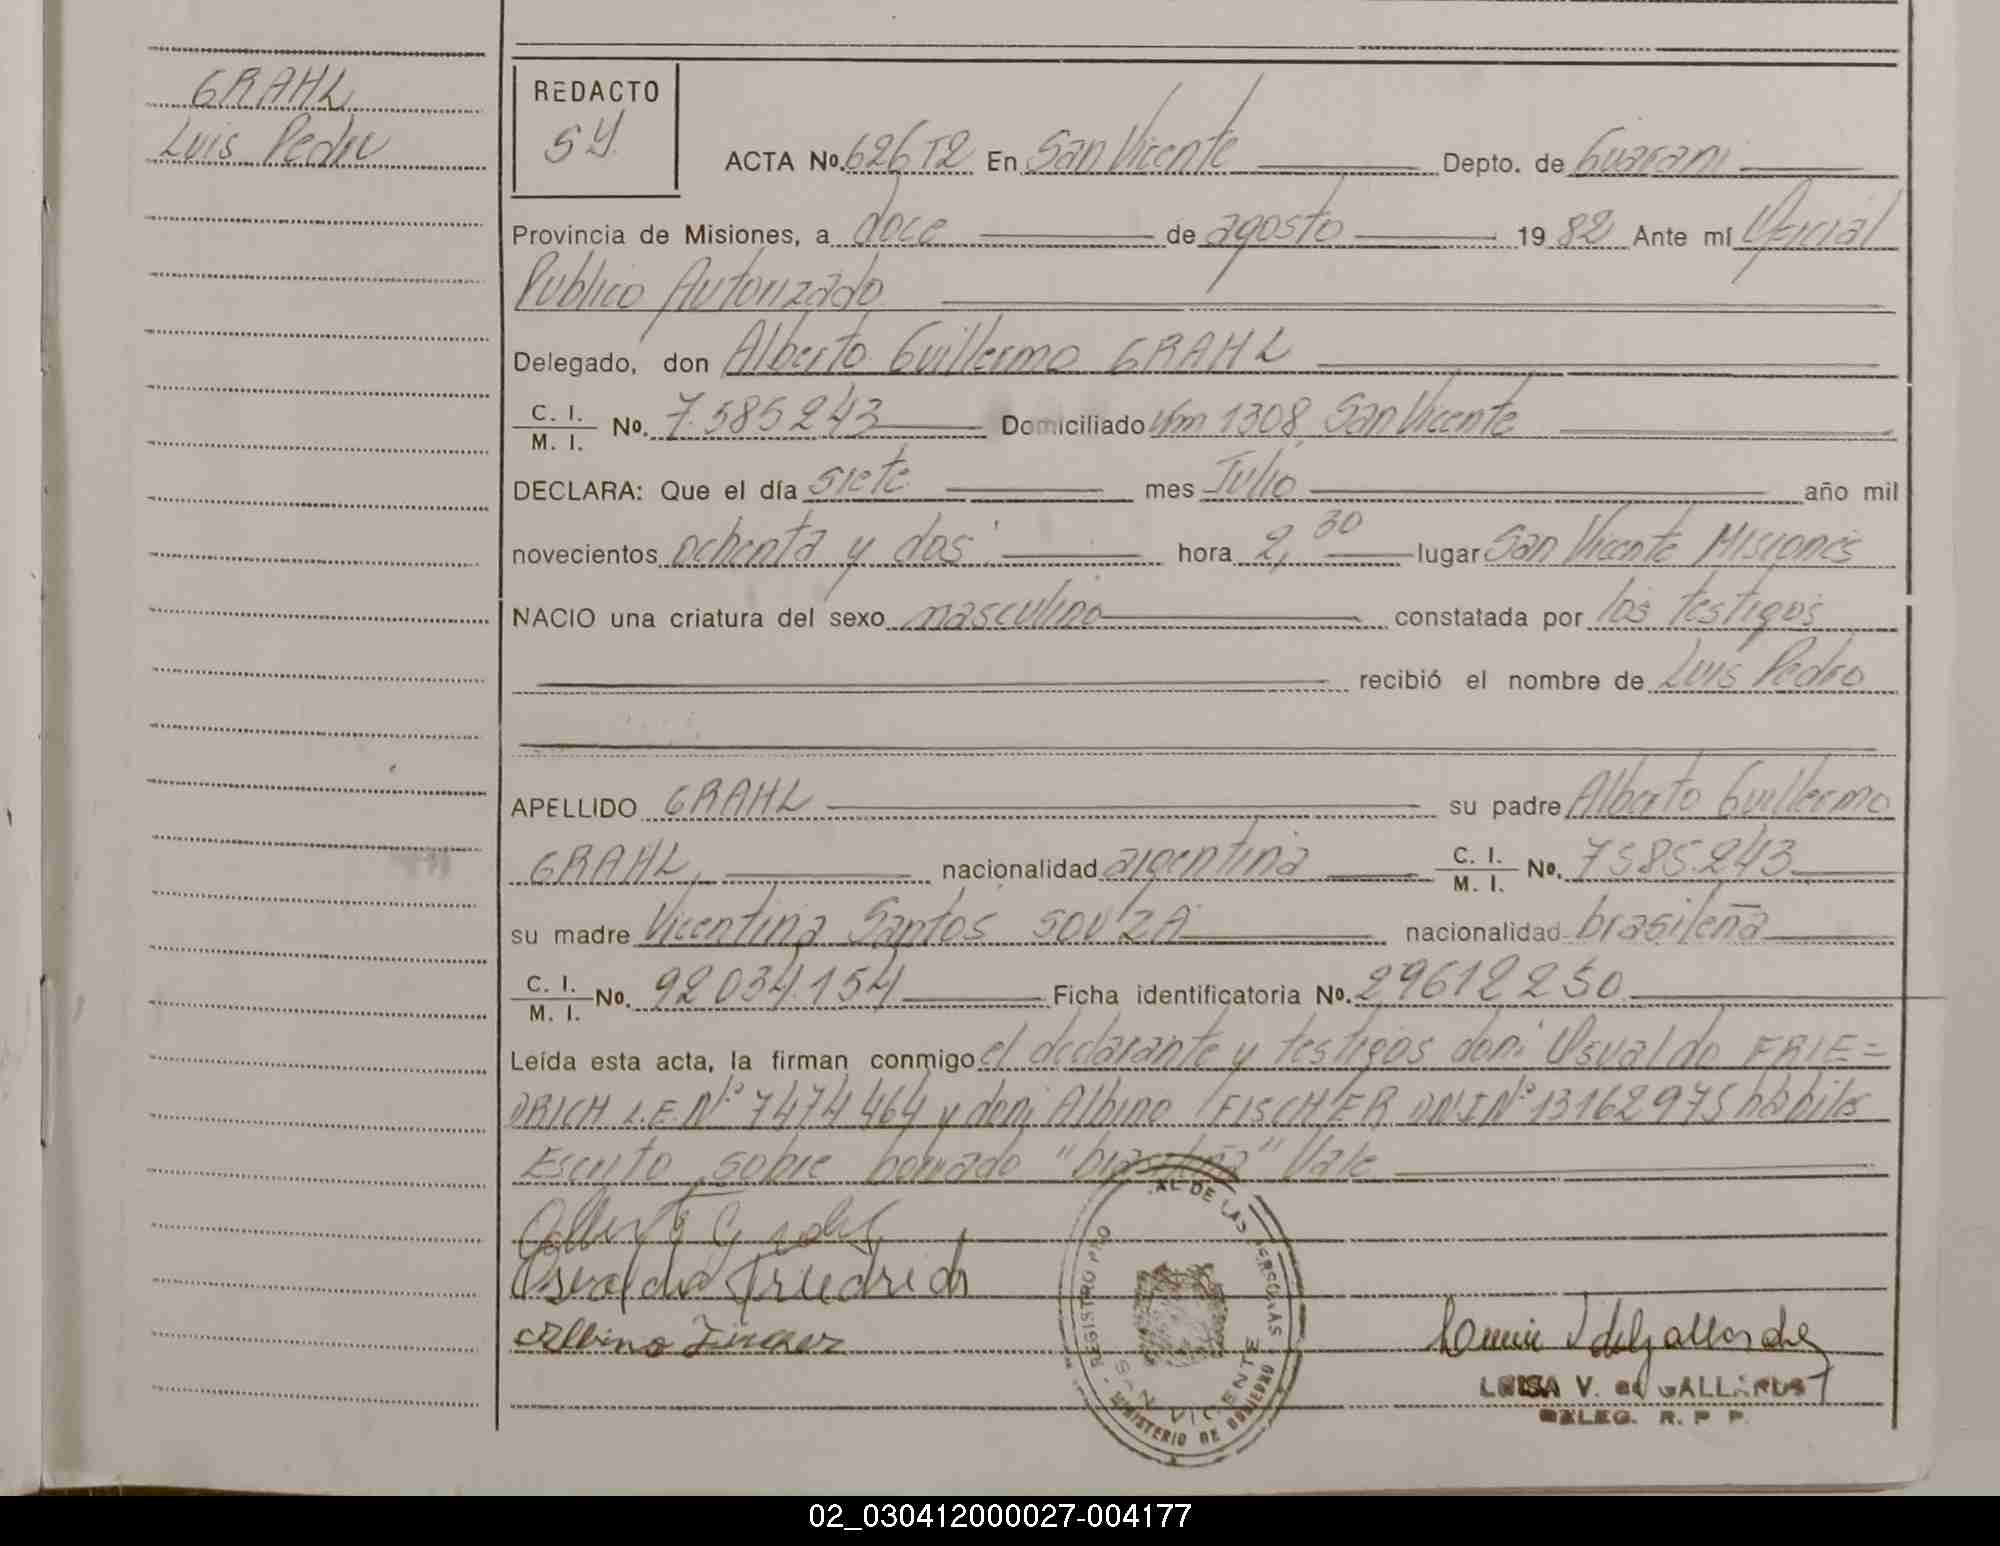 GRAHL
Luis Pedro
REDACTO
SY.
ACTA No. 626 T2 En San Vicente Depto. de Guarani
Provincia de Misiones, a doce de agosto 1982 Ante mí Oficial
Publico Autorizado
Delegado, don Alberto Guillermo GRAHL
C. I. / M. I. No. 7.585243 Domiciliado Km 1308, San Vicente
DECLARA: Que el día siete mes Julio año mil
novecientos ochenta y dos hora 2,30 lugar San Vicente Misiones
NACIO una criatura del sexo masculino constatada por los testigos
recibió el nombre de Luis Pedro
APELLIDO GRAHL su padre Alberto Guillermo
GRAHL, nacionalidad argentina C. I. / M. I. No. 7585.243
su madre Vicentina Santos SOUZA nacionalidad brasileña
C. I. / M. I. No. 92.034.154 Ficha identificatoria No. 29612250
Leída esta acta, la firman conmigo el declarante y testigos don: Osvaldo FRIE=
DRICH L.E Nº 7474464 y don: Albino FISCHER DNI Nº 13162975 hábiles
Escrito sobre borrado "brasileña" Vale
Osvaldo Friedrich
Albino Fischer
AL DE LAS PERSONAS
REGISTRO PRO
SAN VICENTE
MINISTERIO DE GOBIERNO
LUISA V. de GALLARDO
DELEG. R. P. P.
02_030412000027-004177